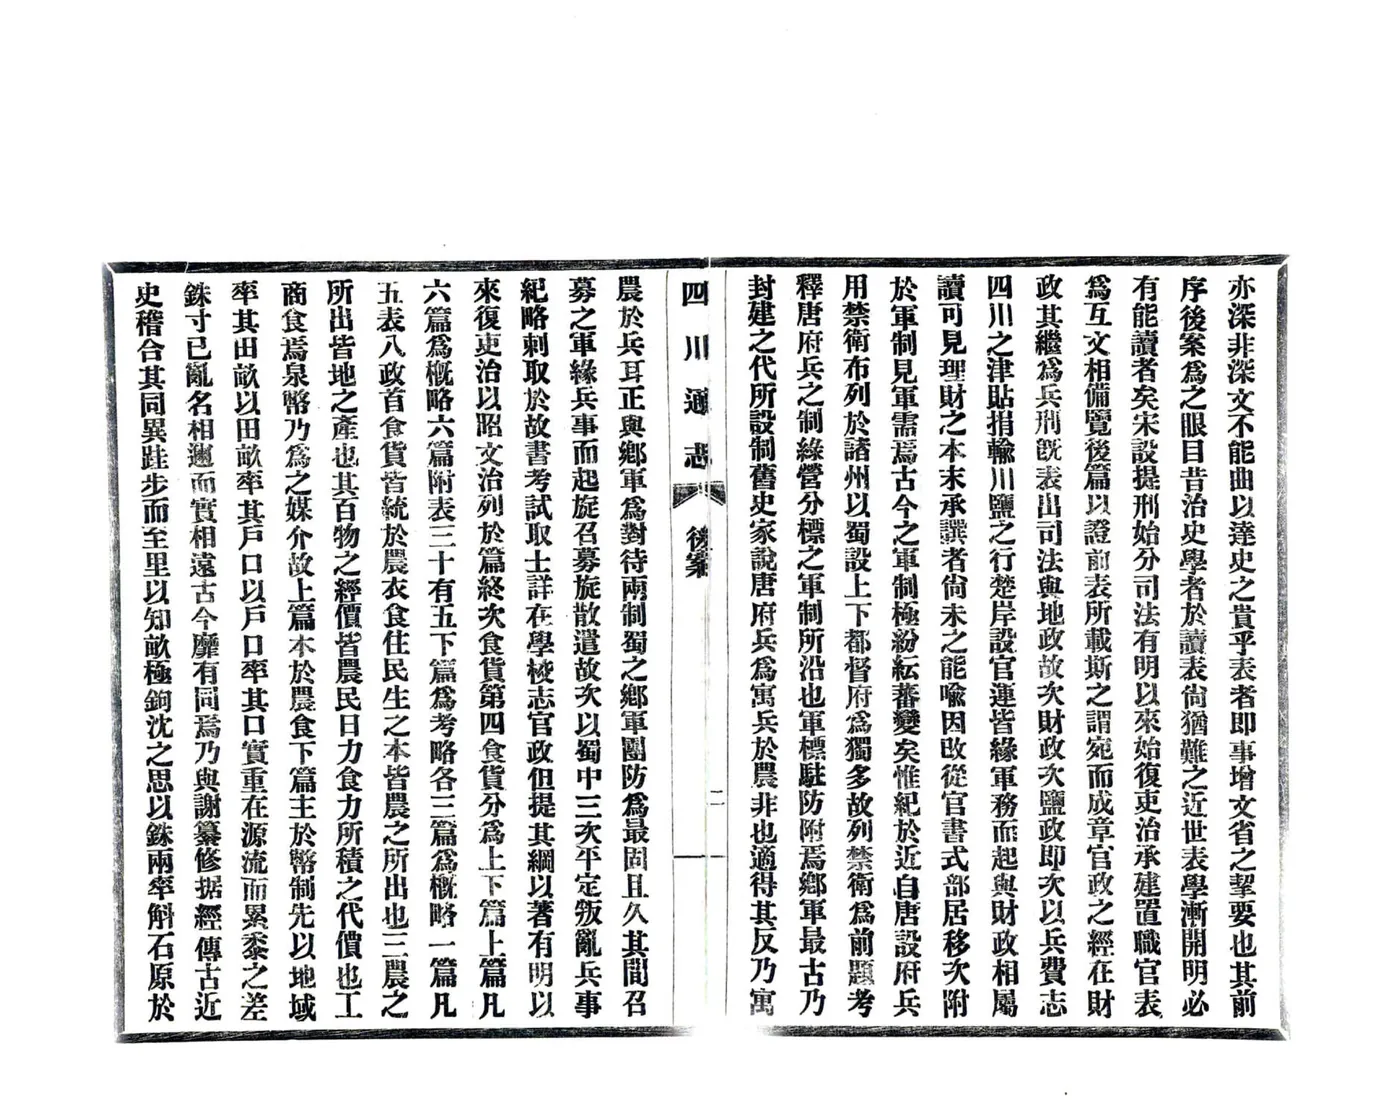 亦深非深文不能曲以達史之貴乎表者即事增文省之挈要也其前
序後案爲之眼目昔治史學者於讀表尙猶難之近世表學漸開明必
有能讀者矣宋設提刑始分司法有明以來始復吏治承建置職官表
爲互文相備覽後篇以證前表所載斯之謂宛而成章官政之經在財
政其繼爲兵刑旣表出司法與地政故次財政次鹽政即次以兵費志
四川之津貼捐輸川鹽之行楚岸設官運皆緣軍務而起與財政相屬
讀可見理財之本末承譔者尙未之能喩因改從官書式部居移次附
於軍制見軍需焉古今之軍制極紛紜蕃變矣惟紀於近自唐設府兵
用禁衛布列於諸州以蜀設上下都督府爲獨多故列禁衛爲前題考
釋唐府兵之制綠營分標之軍制所沿也軍標駐防附焉鄉軍最古乃
封建之代所設制舊史家說唐府兵爲寓兵於農非也適得其反乃寓
四川通志 後案 二
農於兵耳正與鄉軍爲對待兩制蜀之鄉軍團防爲最固且久其間召
募之軍緣兵事而起旋召募旋散遣故次以蜀中三次平定叛亂兵事
紀略刺取於故書考試取士詳在學校志官政但提其綱以著有明以
來復吏治以昭文治列於篇終次食貨第四食貨分爲上下篇上篇凡
六篇爲概略六篇附表三十有五下篇爲考略各三篇爲概略一篇凡
五表八政首食貨皆統於農衣食住民生之本皆農之所出也三農之
所出皆地之產也其百物之經價皆農民日力食力所積之代價也工
商食焉泉幣乃爲之媒介故上篇本於農食下篇主於幣制先以地域
率其田畝以田畝率其戶口以戶口率其口實重在源流而累黍之差
銖寸已亂名相迊而實相遠古今靡有同焉乃與謝纂修据經傳古近
史稽合其同異跬步而至里以知畝極鉤沈之思以銖兩率斛石原於